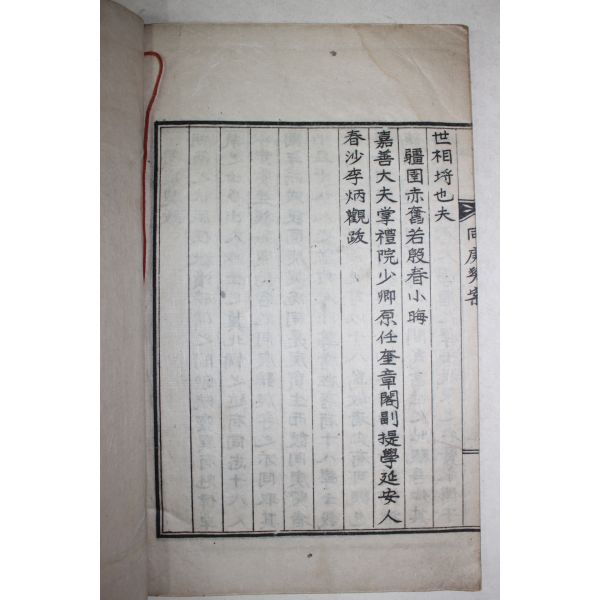 同庚契案
世相將也夫
疆圉赤奮若殷春小晦
嘉善大夫掌禮院少卿原任奎章閣副提學延安人
春沙李炳觀跋